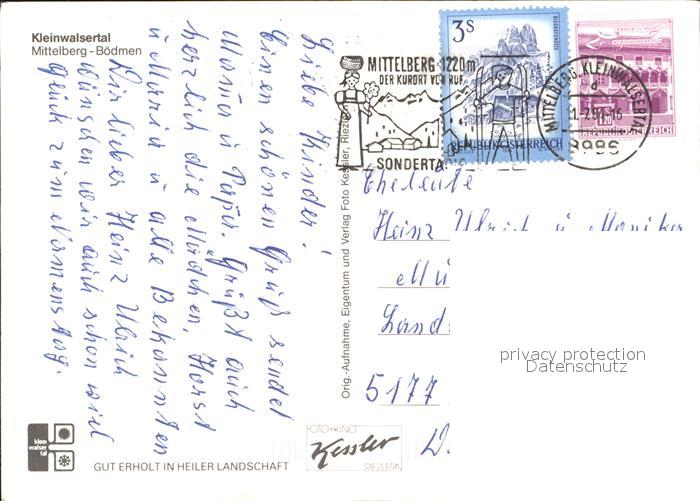 Kleinwalsertal
Mittelberg - Bödmen
Liebe Kinder!
Einen schönen Gruß sendet
Mama u Papa. Grüßt auch
herzlich die Mädchen, Horst
u Maria u alle Bekannten
Dir lieber Heinz Ulrich
wünschen wir auch schon viel
Glück zum Namenstag.
Orig.-Aufnahme, Eigentum und Verlag Foto Kessler, Riezlern
MITTELBERG · 1220 m
DER KURORT VON RUF
SONDERTA
3S
REPUBLIK ÖSTERREICH
1.20
REPUBLIK ÖSTERREICH
MITTELBERG, KLEINWALSERTAL
6986
Eheleute
Heinz Ulrich u Monika
Mü
Land
5177
privacy protection
Datenschutz
klein
walser
tal
GUT ERHOLT IN HEILER LANDSCHAFT
FOTO+KINO
Kessler
RIEZLERN